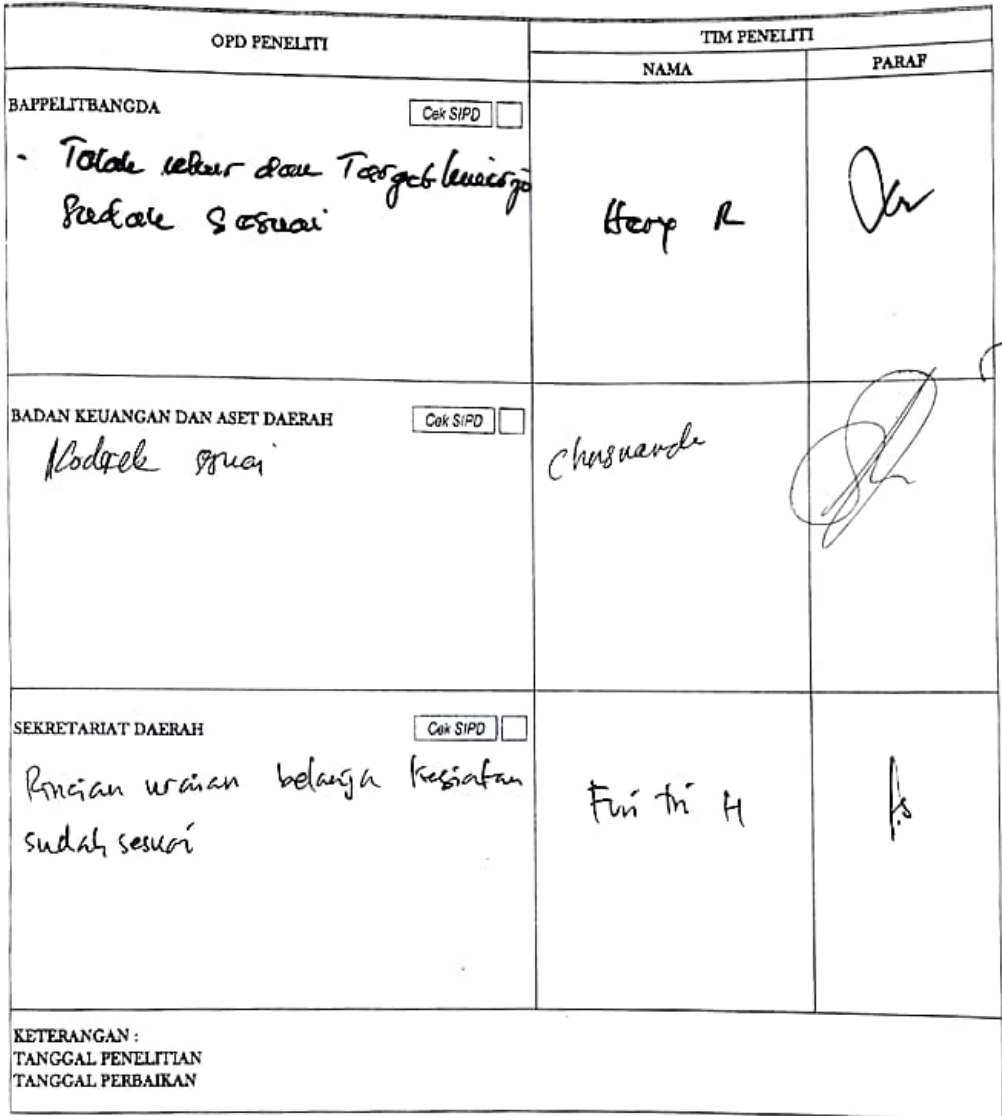 OPD PENELITI
TIM PENELITI
NAMA
PARAF
BAPPELITBANGDA
Cek SIPD
- Tolak ukur dan Target kinerja
sudah sesuai
R
BADAN KEUANGAN DAN ASET DAERAH
Cek SIPD
Koderek sesuai
Chusnanda
SEKRETARIAT DAERAH
Cek SIPD
Rincian uraian belanja kegiatan
sudah sesuai
tri H
KETERANGAN :
TANGGAL PENELITIAN
TANGGAL PERBAIKAN